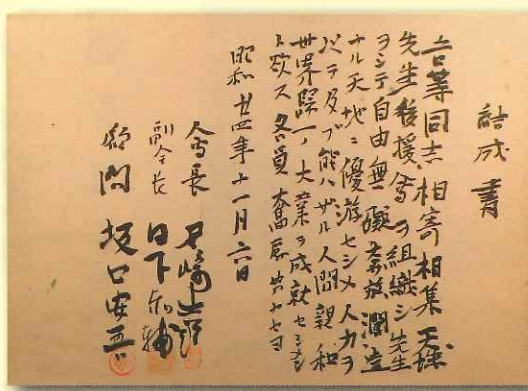 結成書
吾等同志相寄相集天
先生後援會ヲ組織シ先生
ヲシテ自由無礙奔放濶達
ナル天地ニ優游セシメ人力ヲ
以テ及ブ能ハザル人間親和
世界隨一ノ大業ヲ成就セシメン
ト欲ス 各員奮励努力セヨ
昭和廿四年十一月六日
會長 尾崎士郎
副会長 日下
顧問 坂口安吾